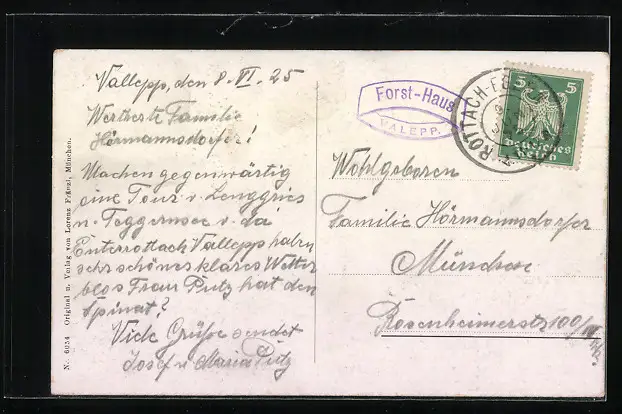 Vallepp, den 8. VI. 25
Werteste Familie
Hörmannsdorfer!
Machen gegenwärtig
eine Tour v. Lenggries
n. Teggernsee v. da
Enterrottach Vallepp haben
sehr schönes klares Wetter
blos Frau Putz hat den
Spinat?
Viele Grüße sendet
Josef u. Maria Putz
N. 6034 Original u. Verlag von Lorenz Fränzl, München.
Forst-Haus
VALEPP.
ROTTACH-
5 5
Deutsches
Reich
Wohlgeboren
Familie Hörmannsdorfer
München
Rosenheimerstr 100/III